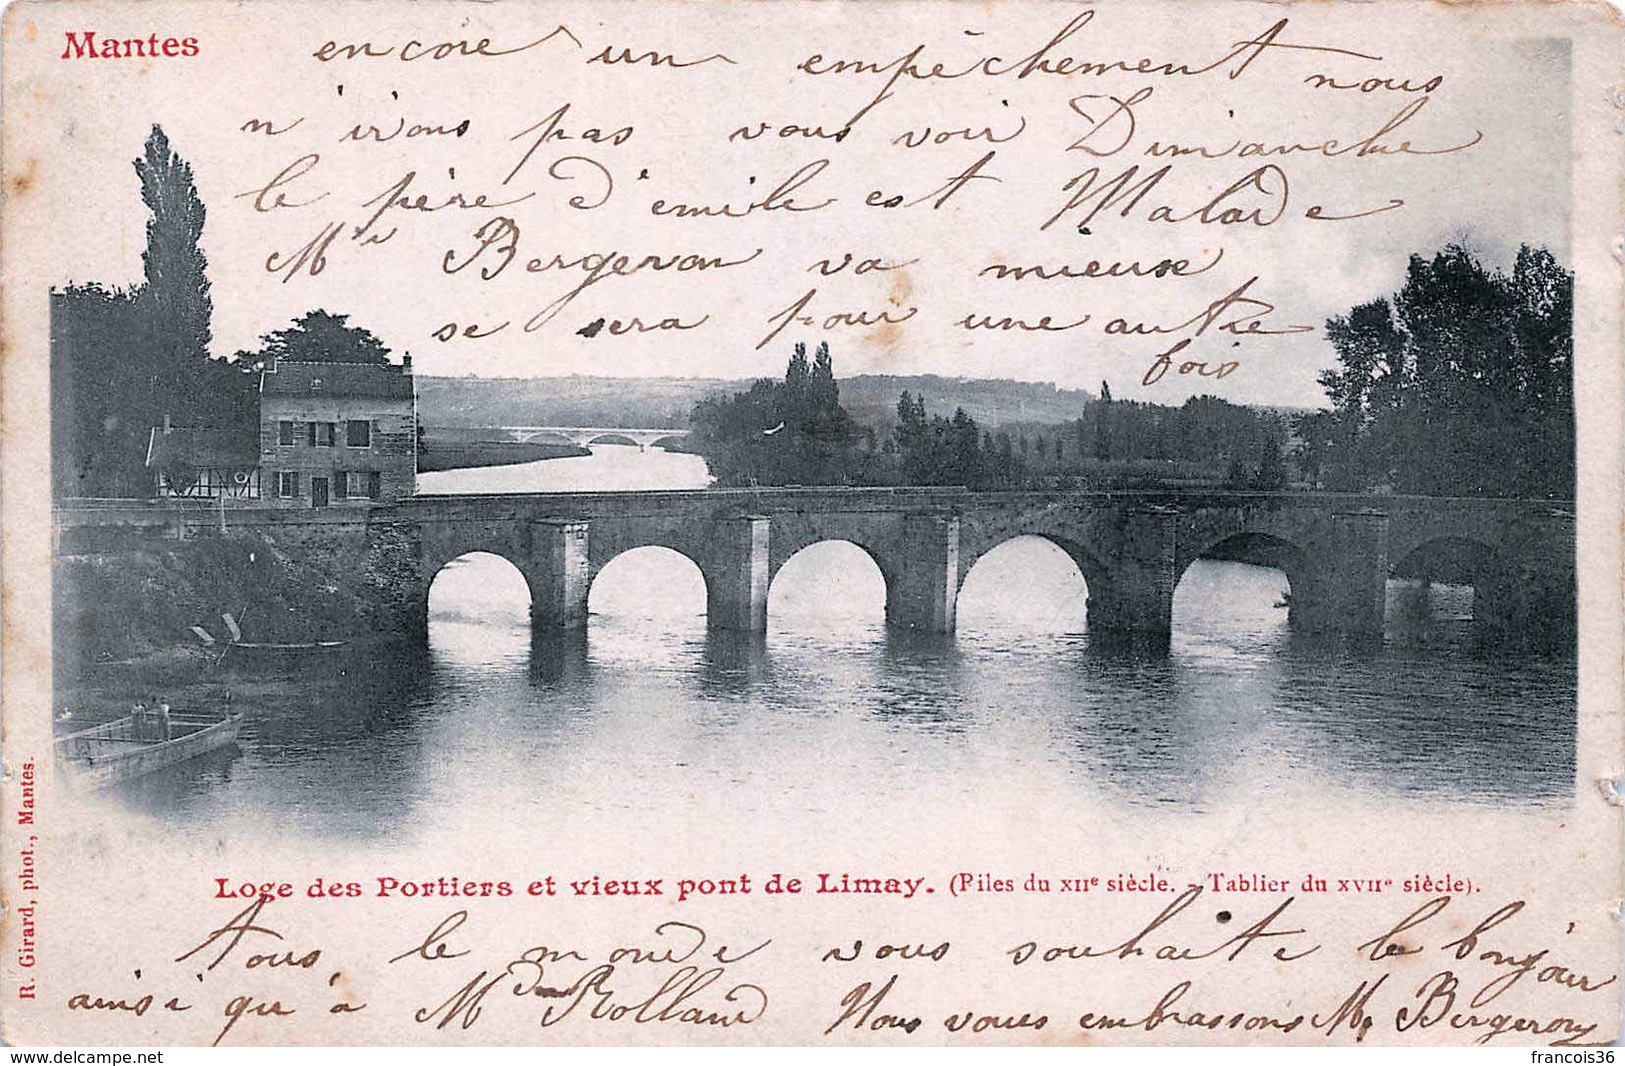 Mantes
encore un empêchement nous
n'irons pas vous voir Dimanche
le père d'émile est Malade
Mr Bergeron va mieux
se sera pour une autre
fois
R. Girard, phot., Mantes.
Loge des Portiers et vieux pont de Limay. (Piles du XIIe siècle. - Tablier du XVIIe siècle).
Tous le monde vous souhaite le bonjour
ainsi qu'à Md Rolland Nous vous embrassons M. Bergeron
francois36